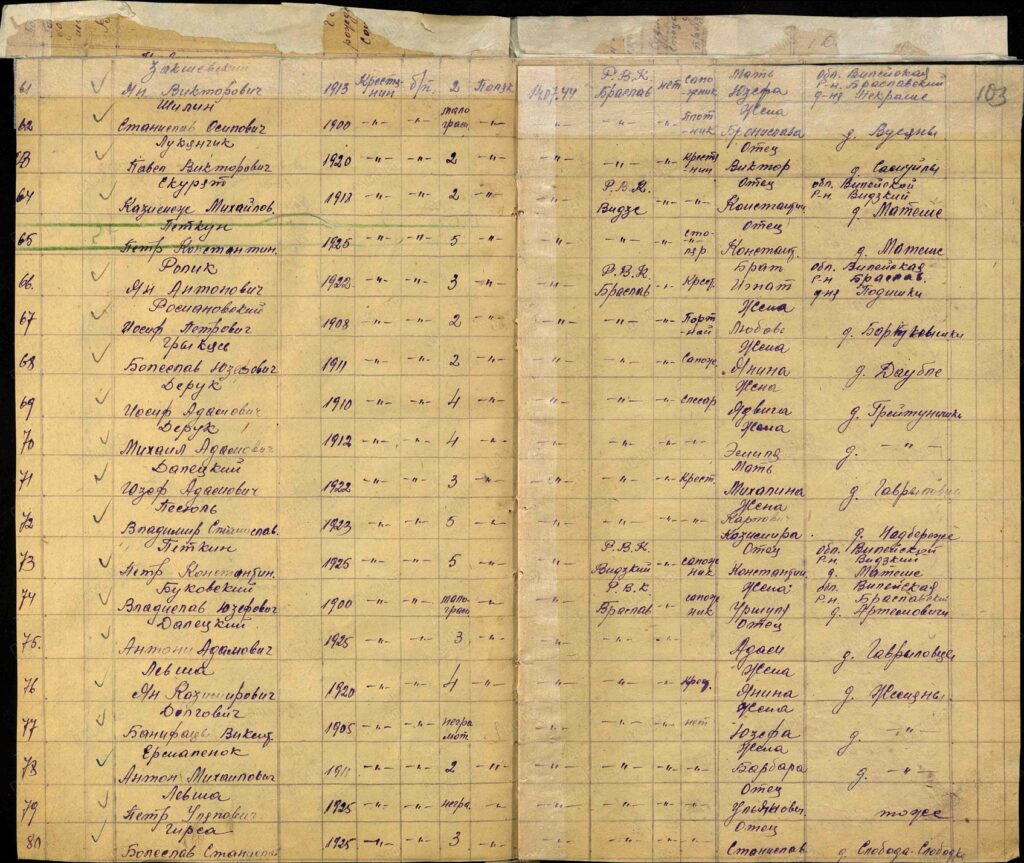 103
61 Ян Викторович 1913 Крестьнин б/п. 2 Поляк 14.07.44 Р.В.К. Браслав нет сапожник Мать Юзефа обл. Вилейская р-н. Браславский д-ня Некраше
62 Шилин Станислав Осипович 1900 -"- -"- малограм. -"- -"- -"- -"- Плотник Жена Бронислава д. Вусяны
Лукянчик Павел Викторович 1920 -"- -"- 2 -"- -"- -"- -"- Крестнин Отец Виктор д.
64 Скурят Казимеж Михайлов. 1913 -"- -"- 2 -"- -"- Р.В.К. Видзе -"- -"- Отец Константин обл. Вилейской р-н. Видзкий д. Матеше
65 Петкун Петр Константин. 1925 -"- -"- 5 -"- -"- -"- -"- столяр Отец Констант. д. Матеше
66. Ропик Ян Антонович 1922 -"- -"- 3 -"- -"- Р.В.К. Браслав -"- Крест. Брат Игнат обл. Вилейская р-н Браслав. дня Подишки
67 Иосиф Петрович 1908 -"- -"- 2 -"- -"- -"- -"- Портной Жена Любовь д.
68 Болеслав Юзефович 1911 -"- -"- 2 -"- -"- -"- -"- сапож. Жена Янина д. Даубле
69 Дерук Иосиф Адамович 1910 -"- -"- 4 -"- -"- -"- -"- слесар Жена Ядвига д. Грейтунишки
70 Дерук Михаил Адамович 1912 -"- -"- 4 -"- -"- -"- -"- -"- Жена д. -"-
71 Далецкий Юзеф Адамович 1922 -"- -"- 3 -"- -"- -"- -"- Крест. Мать Михалина д.
72 Песюль Владимир Станислав. 1923 -"- -"- 5 -"- -"- -"- -"- -"- Жена Казимира д. Надбереже
73 Петкин Петр Константин. 1925 -"- -"- 5 -"- -"- Р.В.К. Видзкий -"- сапожник Отец Константин. обл. Вилейской р-н. Видзкий д. Матеше
74 Буковский Владислав Юзефович 1900 -"- -"- малограм -"- -"- Р.В.К Браслав -"- сапожник Жена Уршуля обл. Вилейская р-н. Браславский д. Артемовичи
75. Далецкий Антони Адамович 1925 -"- -"- 3 -"- -"- -"- -"- -"- Отец Адам д. Гавриловце
76 Левша Ян Казимирович 1920 -"- -"- 4 -"- -"- -"- -"- Крест. Жена Янина д.
77 Долгович 1905 -"- -"- неграмот. -"- -"- -"- -"- нет Жена Юзефа д. -"-
78 Ермаленок Антон Михайлович 1911 -"- -"- 2 -"- -"- -"- -"- -"- Жена Барбара д. -"-
79 Левша Петр 1925 -"- -"- негра. -"- -"- -"- -"- -"- Отец тоже
80 Гирса Болеслав 1925 -"- -"- 3 -"- -"- -"- -"- -"- Отец Станислав д. Слобода-Слобода